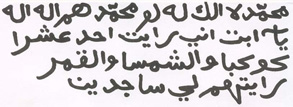 محمد لا الك له لو محمد هم اله اله
يا ابت اني رايت احد عشرا
كوكبا والشمسا والقمر
رايتهم لي ساجدين